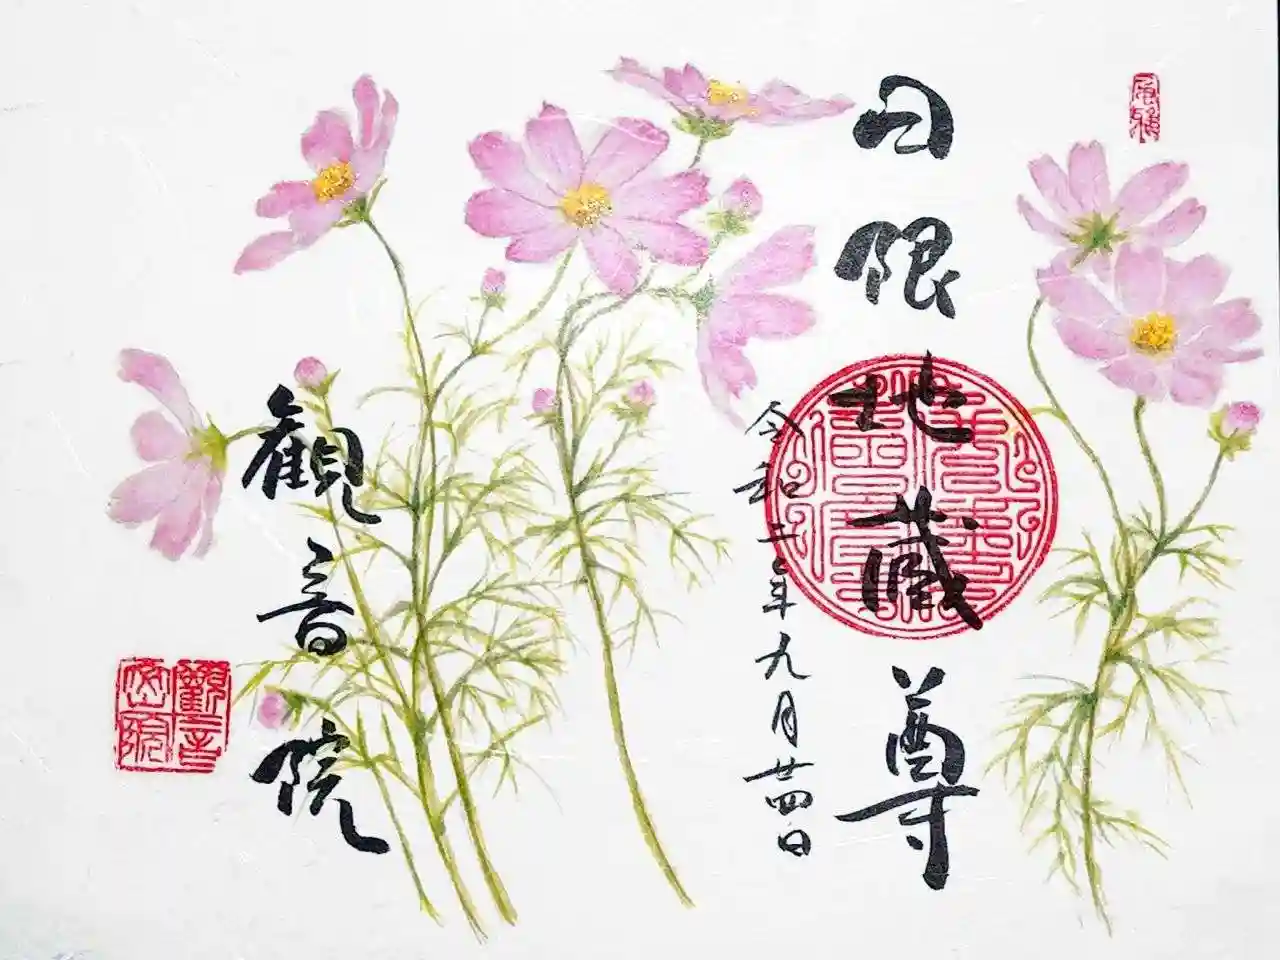 日限地蔵尊
令和二年九月廿四日
観音院
觀音密院